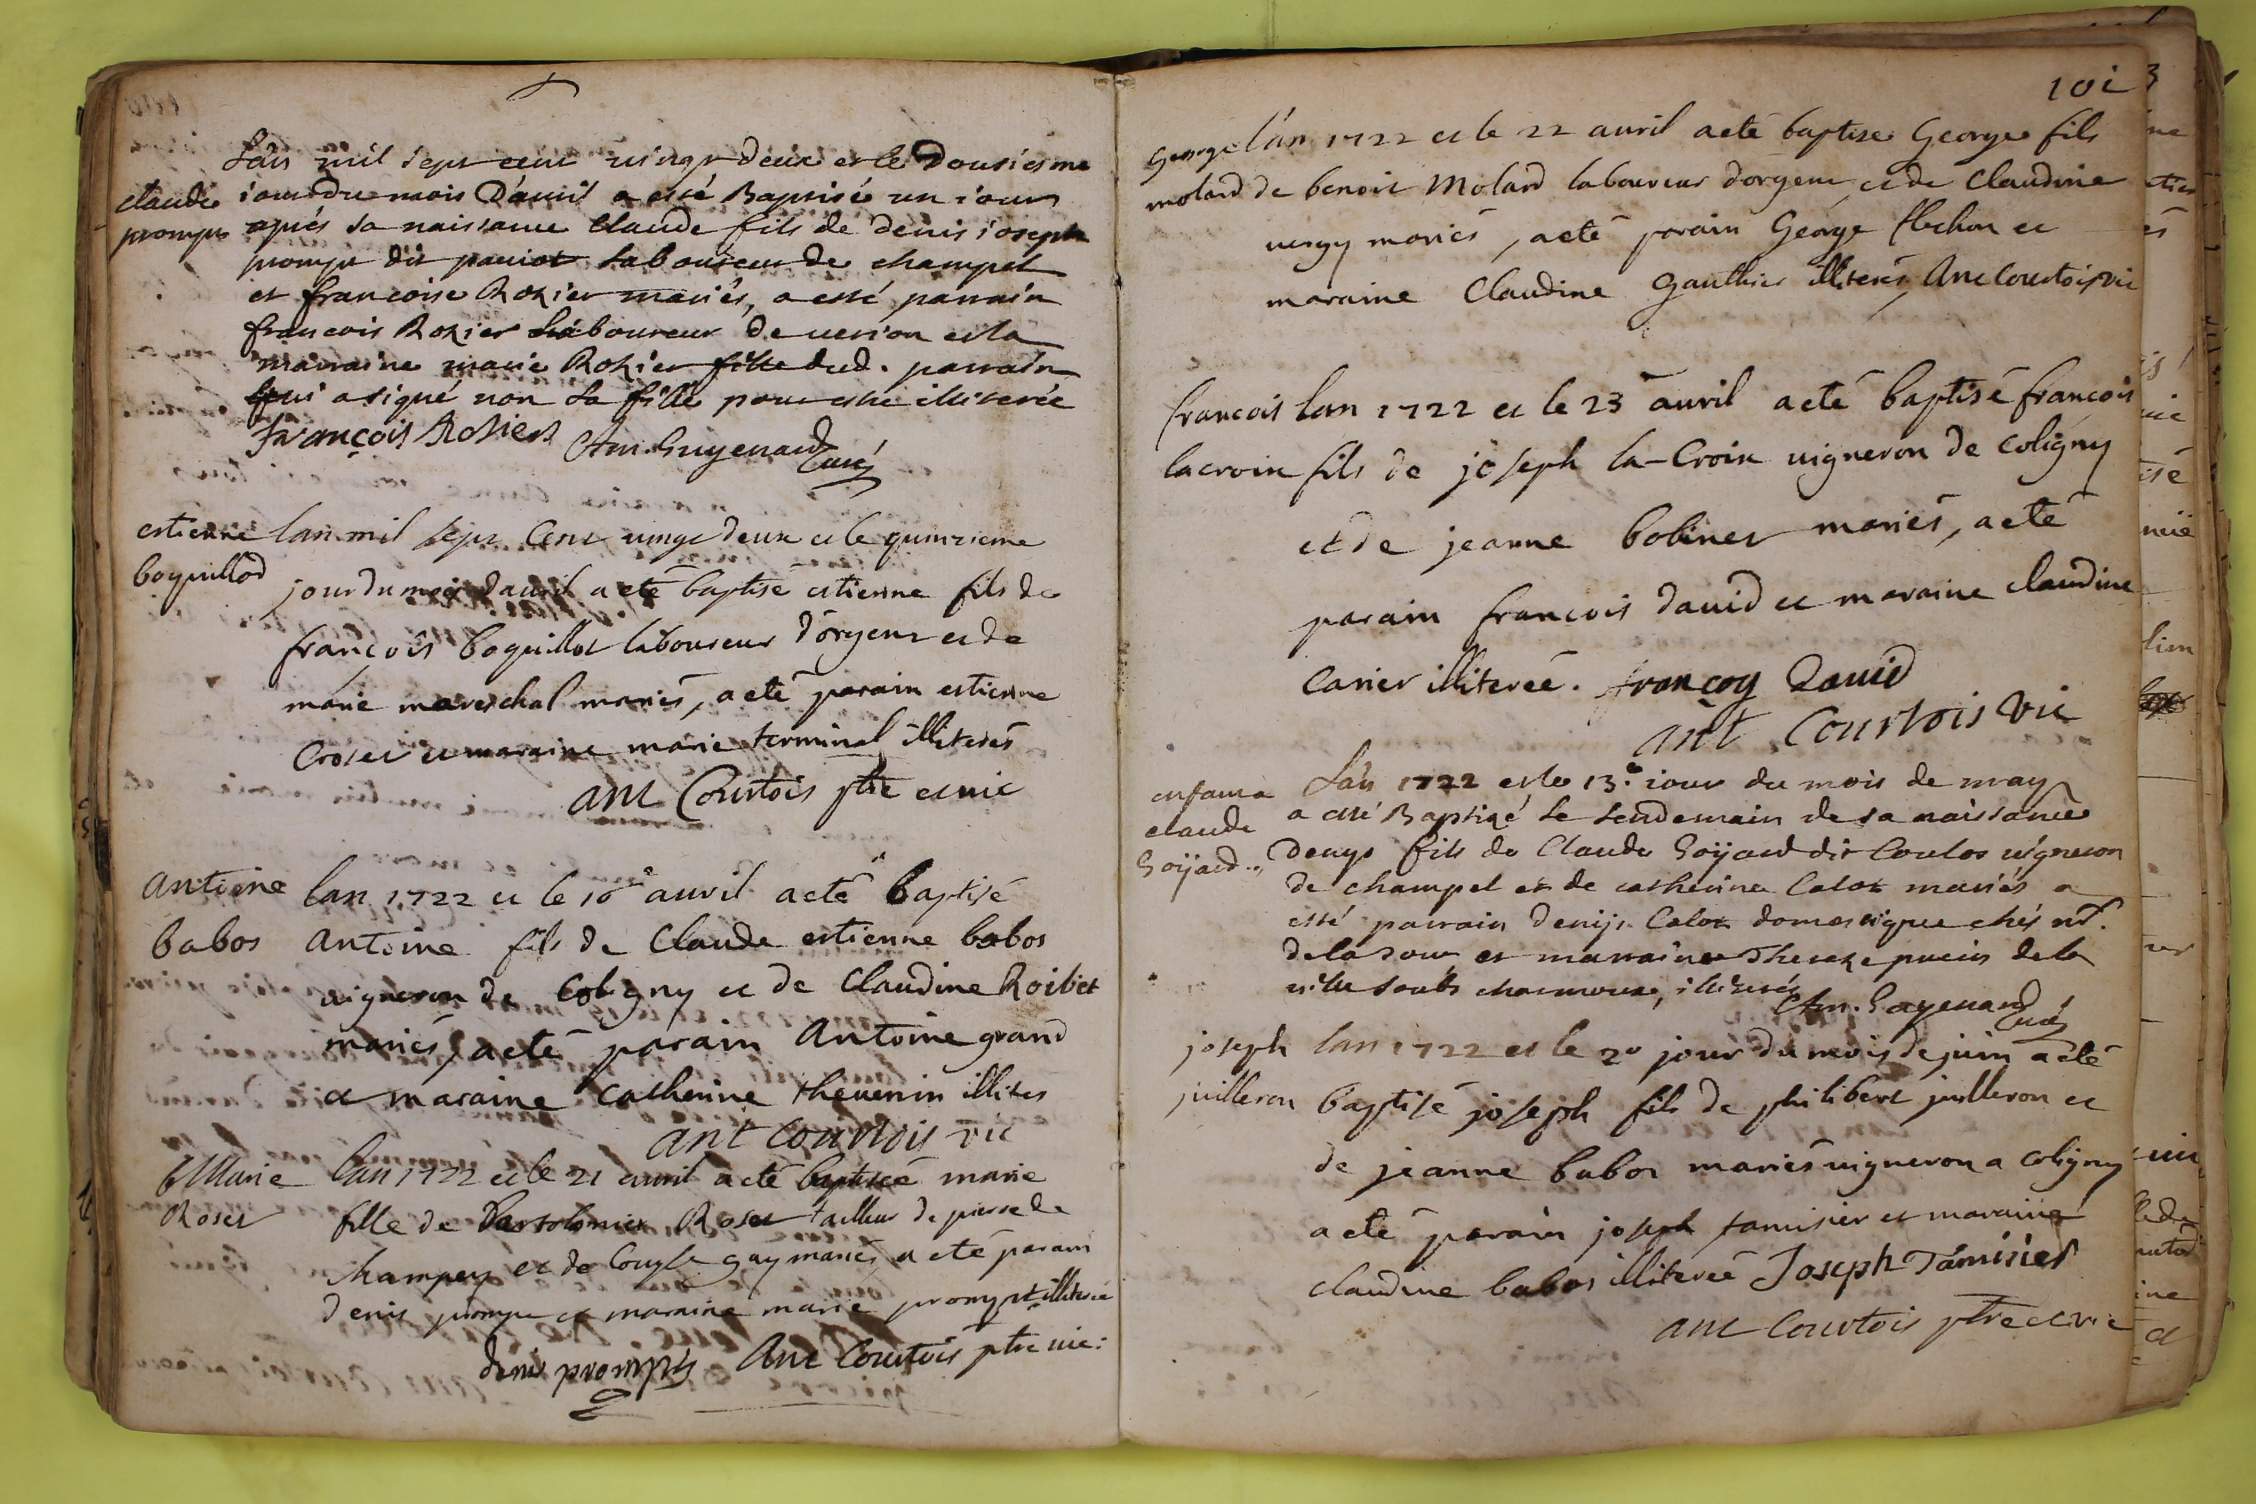 L'an mil sept cent vingt deux et le Dousiesme
claude jour du mois D'avril a esté Baptisé un jour
prompt aprés sa naissance Claude fils de denis joseph
prompt dit pauiot Laboureur de champel
et francoise Rozier mariés, a esté parrain
francois Rozier Laboureur de verion et la
marraine marie Rozier fille dud. parrain
qui a signé non La fille pour estre illiterée
François Rosier Am. Guyenard Curé
estienne lan mil sept Cent vingt deux et le quinzieme
boquillod jour du mois davril a eté baptisé estienne fils de
françois boquillot laboureur d'orgent et de
marie mareschal mariés, a eté parain estienne
Croset et maraine marie terminal illiterés
Ant Courtois ptre et vic
Antoine lan 1722 et le 18e auril a eté baptisé
babos Antoine fils de Claude estienne babos
vigneron de Coligny et de Claudine Roibet
mariés, a eté parain Antoine grand
et maraine Catherine thevenin illites
Ant Courtois vic
Marie lan 1722 et le 21 avril a eté baptisée marie
Roset fille de Bartolomier Roset tailleur de pierre de
champey et de gay mariés, a eté parain
denis prompt et maraine marie prompt illiterée
denis prompts Ant Courtois ptre vic:
101
George l'an 1722 et le 22 auril a eté baptise George fils
molard de benoit Molard laboureur dorgent, et de Claudine
vergy mariés, a eté parain George flechon et
maraine Claudine Gauthier illiterés, Ant Courtois vic
francois lan 1722 et le 23 auril a eté baptisé françois
lacroix fils de joseph la-Croix vigneron de Coligny
et de jeanne bobinet mariés, a eté
parain francois david et maraine claudine
Carier illiterée. françoy David
Ant Courtois Vic
L'an 1722 et le 13.e jour du mois de may
claude a esté Baptizé le Lendemain de sa naissance
Goÿard.. denys fils de Claude Goÿard dit Coulos vigneron
de champel et de catherine Calot mariés a
esté parrain denijs Calot domestique chés mr.
de la dour et marraine Therese puein de la
ville soubs charmoux, illiterés
Am. Guyenard Curé
joseph lan 1722 et le 20 jour du mois de juin a eté
juilleron baptisé joseph fils de philibert juilleron et
de jeanne babos mariés vigneron a coligny
a eté parain joseph tamisier et maraine
claudine babos illiterée Joseph Tamisier
Ant Courtois ptre et vic